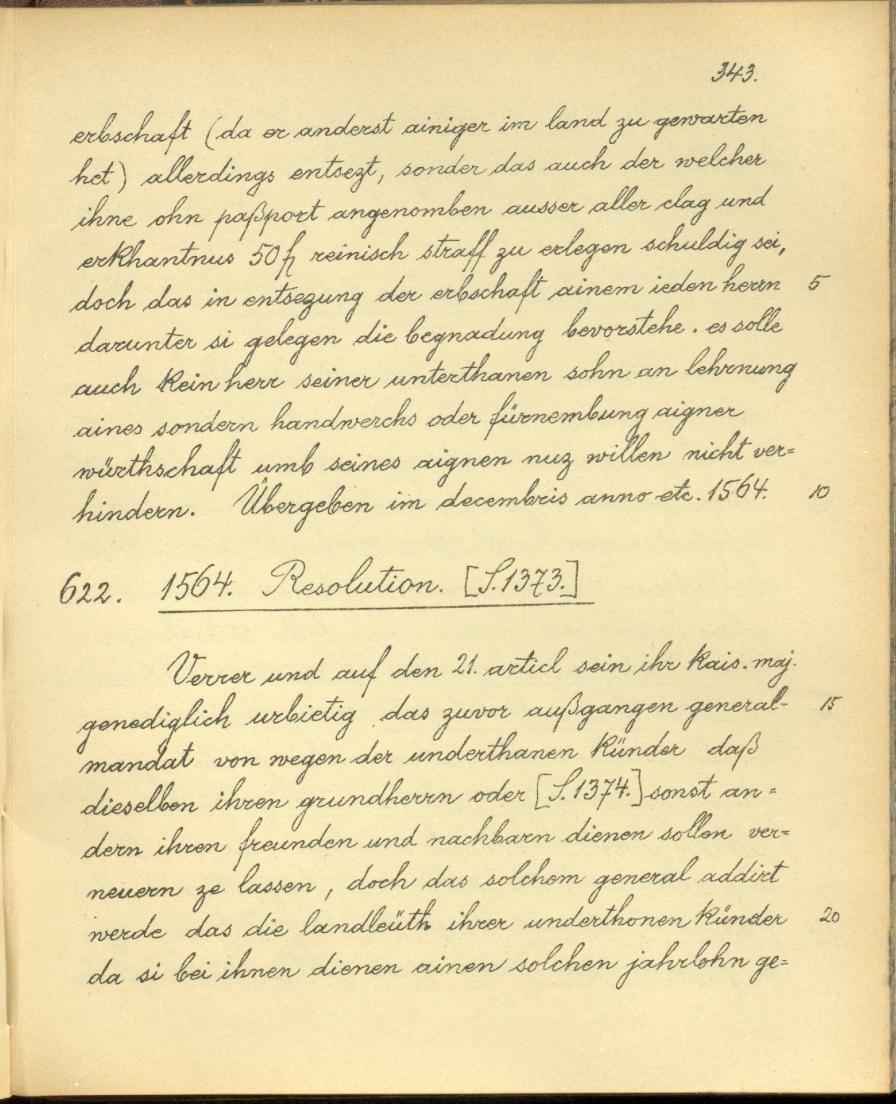 343.
erbschaft (da er anderst ainiger im land zu gewarten
het) allerdings entsezt, sonder das auch der welcher
ihne ohn paßport angenomben ausser aller clag und
erkhantnus 50 fl reinisch straff zu erlegen schuldig sei,
doch das in entsezung der erbschaft ainem ieden herrn 5
darunter si gelegen die begnadung bevorstehe. es solle
auch kein herr seiner unterthanen sohn an lehrnung
aines sondern handwerchs oder fürnembung aigner
würthschaft umb seines aignen nuz willen nicht ver=
hindern. Übergeben im decembris anno etc. 1564. 10
622. 1564. Resolution. [S.1373.]
Verrer und auf den 21. articl sein ihr kais. maj.
genediglich urbietig das zuvor außgangen general- 15
mandat von wegen der underthanen künder daß
dieselben ihren grundherrn oder [S.1374.] sonst an=
dern ihren freunden und nachbarn dienen sollen ver=
neuern ze lassen, doch das solchem general addirt
werde das die landleüth ihrer underthonen künder 20
da si bei ihnen dienen ainen solchen jahrlohn ge=